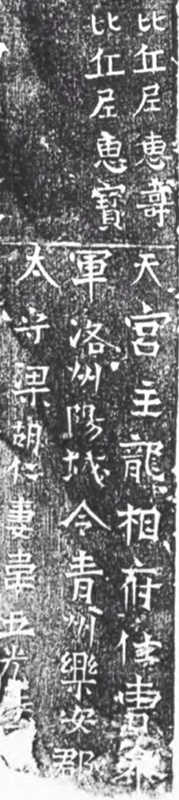 比丘尼惠壽
比丘尼惠寶
天宮主龍相府曹參
軍洛州陽城令青州樂安郡
太守梁胡仁妻韋五光